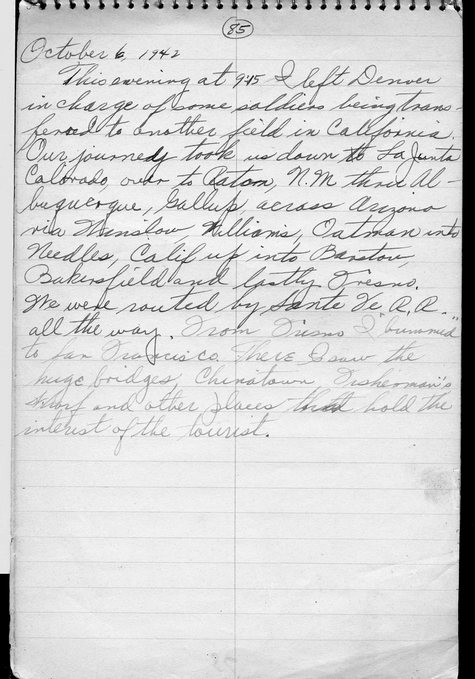 85
October 6, 1942
This evening at 9:45 I left Denver
in charge of some soldiers being trans-
fered to another field in California.
Our journey took us down to La Junta
Colorado, over to Raton, N.M. thru Al-
buquerque, Gallup, across Arizona
via Winslow, Williams, Oatman into
Needles, Calif up into Barstow,
Bakersfield and lastly Fresno.
We were routed by Sante Fe R.R.
all the way. From Fresno I "bummed"
to San Francisco. There I saw the
huge bridges, Chinatown, Fisherman's
Wharf and other places that hold the
interest of the tourist.